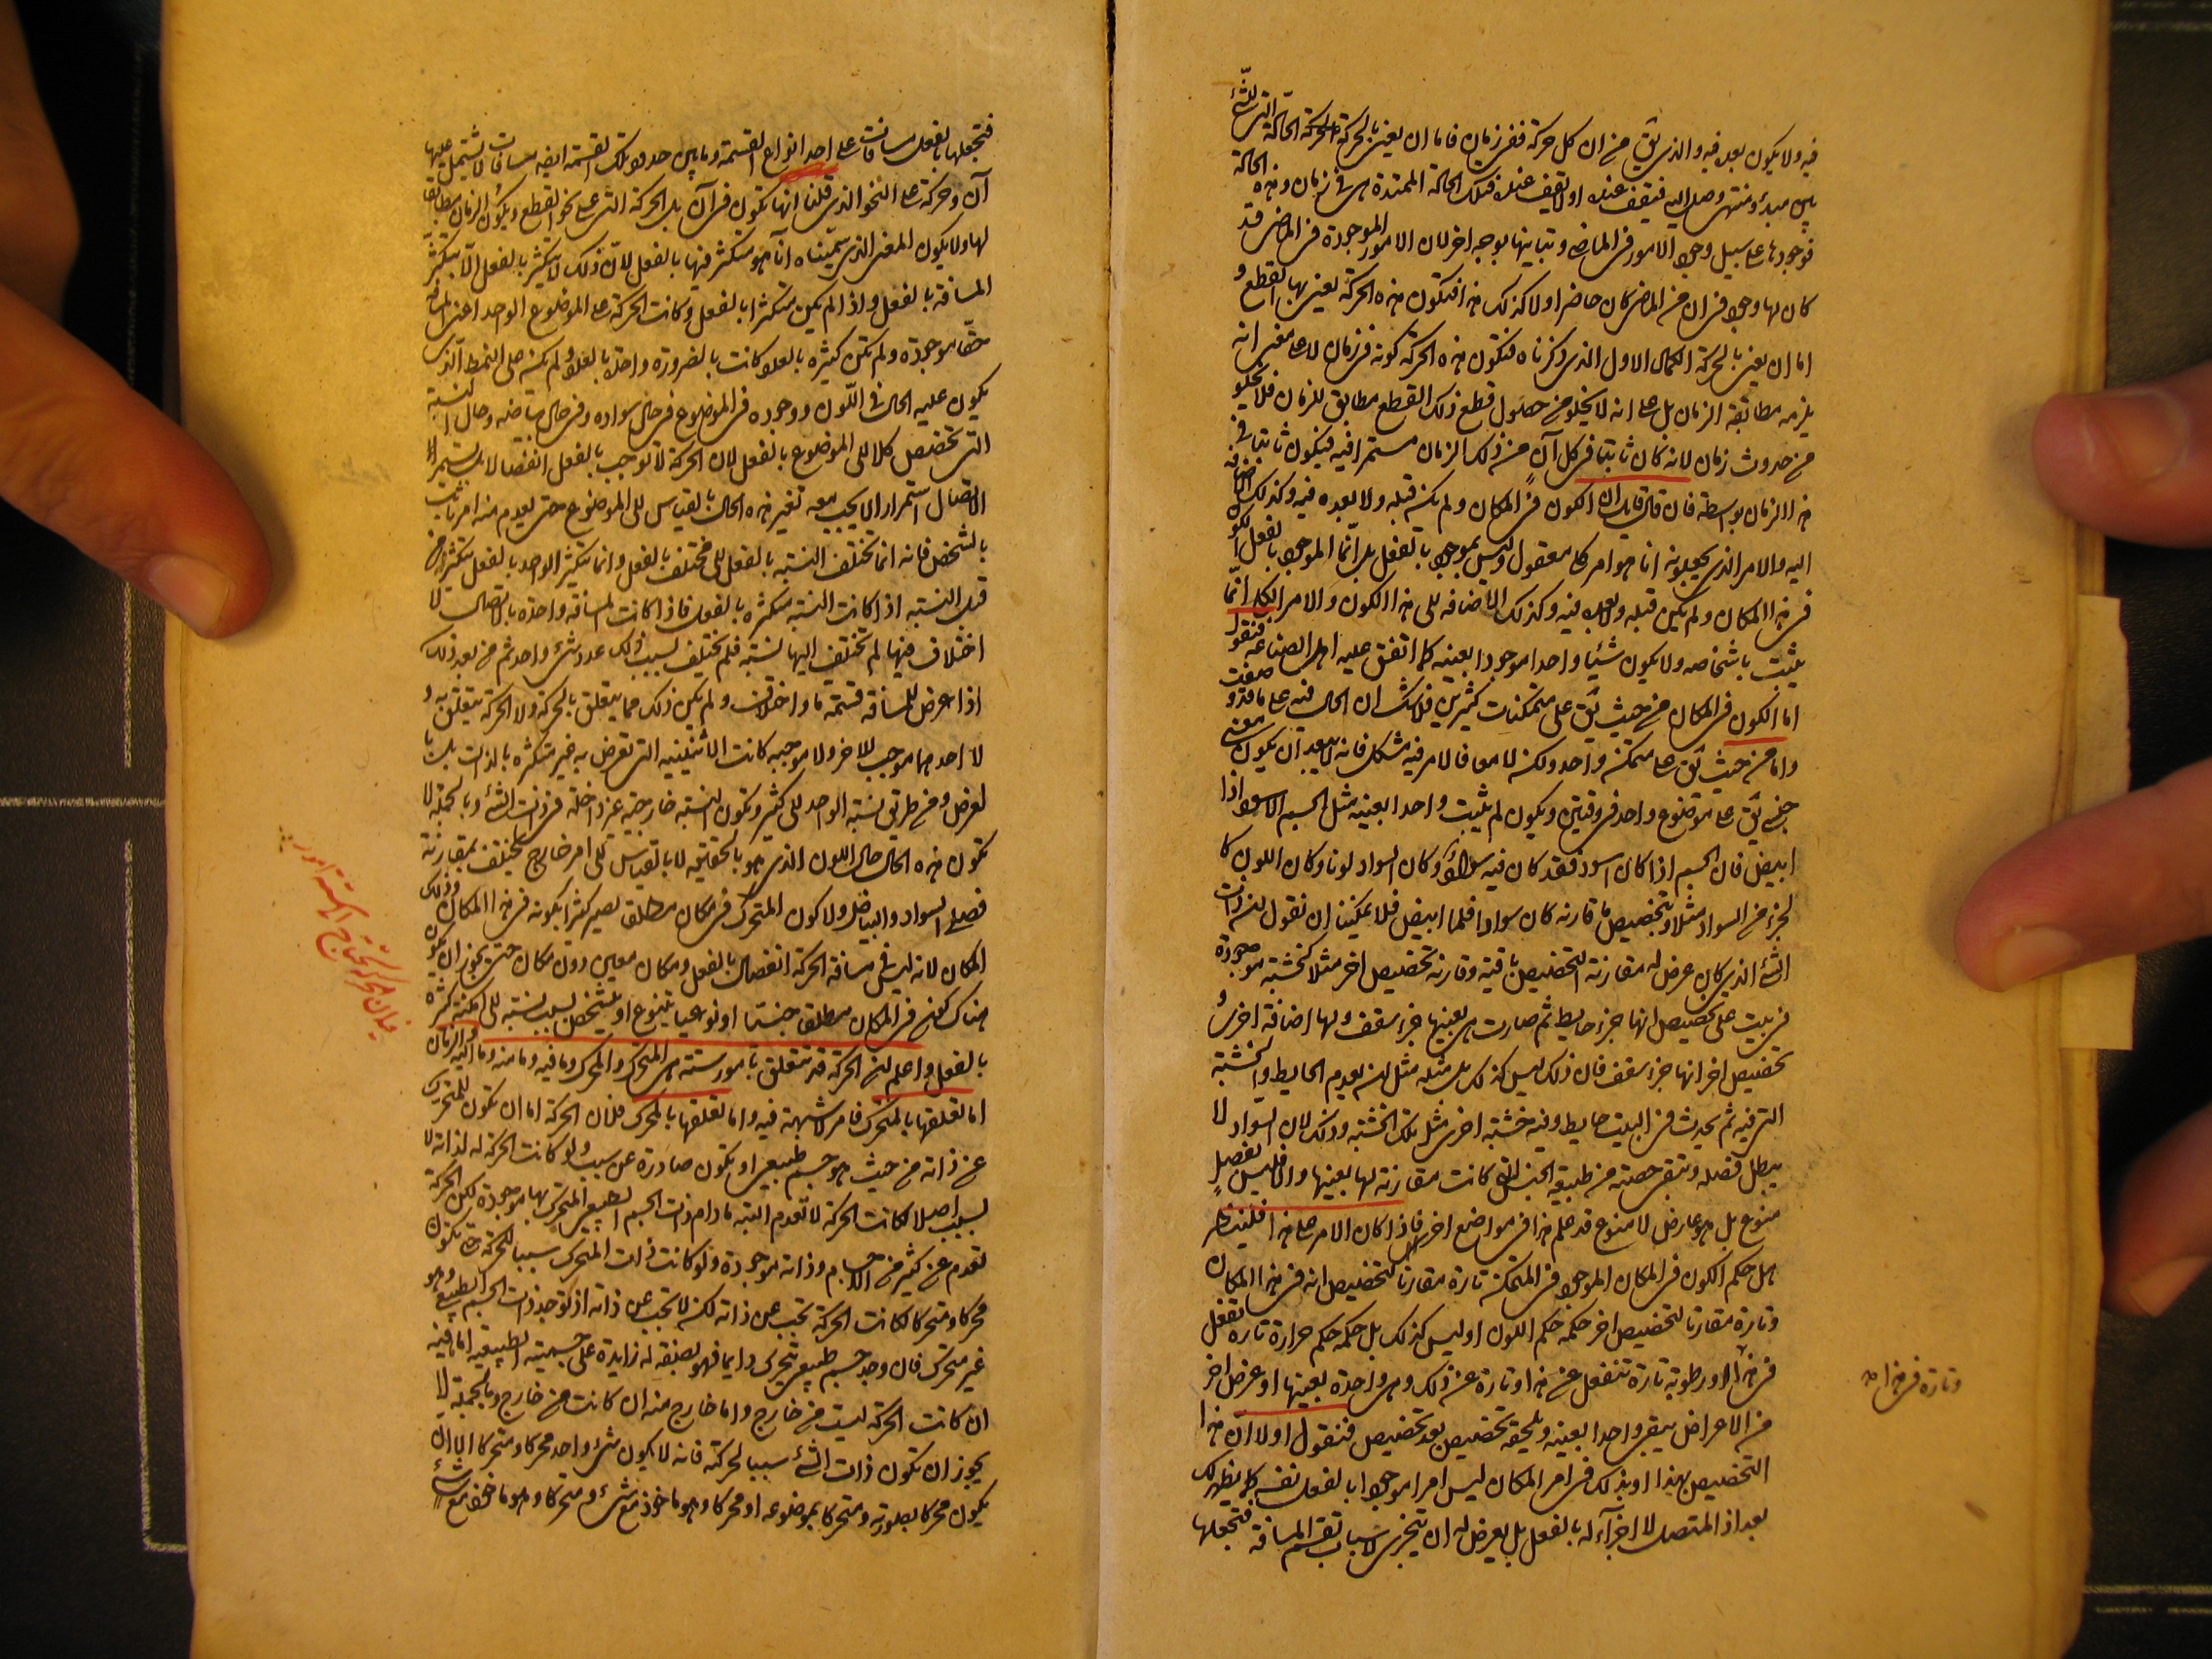 فيه ولا يكون بعده فيه والذي يق من ان كل حركة ففي زمان فاما ان يعنى بالحركة الحالة التي للشئ
بين مبدء ومنتهى وصل اليه فتقف عنده او لا تقف عنده فتلك الحالة الممتدة هى في زمان وهذه الحالة
فوجودها على سبيل وجود الامور في الماضى وتباينها بوجه اخر لان الامور الموجودة في الماضى قد
كان لها وجود في ان من الماضى كان حاضرا ولا كذلك هذا فتكون هذه الحركة يعنى بها القطع و
اما ان يعنى بالحركة الكمال الاول الذى ذكرناه فتكون هذه الحركة كونه في زمان لا على معنى انه
يلزمه مطابقة الزمان بل على انه لا يخلو من حصول قطع ذلك القطع مطابق للزمان فلا يخلو
من حدوث زمان لانه كان ثابتا في كل آن من ذلك الزمان مستمرا فيه فيكون ثابتا في
هذا الزمان بواسطة فان قال قايل ان الكون في المكان ولم يكن قبله ولا بعده فيه وكذلك الاضافة
اليه والامر الذي يجعلونه انا هو امر كلى معقول وليس بموجود بالفعل بل انما الموجود بالفعل الكون
في هذا المكان ولم يكن قبله ولا بعده فيه وكذلك الاضافة الى هذا الكون والامر الكلى انما
يثبت باشخاصه ولا يكون شيئا واحدا موجودا بعينه كما اتفق عليه اهل الصناعة فنقول
اما الكون في المكان من حيث يق على متمكنات كثيرين فلا شك ان الحال فيه على ما قد وصفت
واما من حيث يق على متمكن واحد ولكن لا معا فالامر فيه مشكل فانه لا يبعد ان يكون معنى
جنسى يق على موضوع واحد في وقتين ويكون لم يثبت واحدا بعينه مثل الجسم الاسود اذا
ابيض فان الجسم اذا كان اسود فقد كان فيه سواد وكان السواد لونا وكان اللون كا
لجزء من السواد مثلا وبتخصيص ما قارنه كان سوادا فلما ابيض فلا يمكننا ان نقول ان ذات
الشئ الذي كان عرض له مقارنة التخصيص باقية وقارنه تخصيص اخر مثلا كخشبة موجودة
في بيت على تخصيص انها جزء حايط ثم صارت هى بعينها جزء سقف ولها اضافة اخرى و
تخصيص اخر انها جزء سقف فان ذلك ليس كذلك بل مثله مثل ان يعدم الحايط والخشبة
التي فيه ثم يحدث في البيت حايط وفيه خشبة اخرى مثل تلك الخشبة وذلك لان السواد لا
يبطل فصله وتبقى حصته من طبيعة الجنس التى كانت مقارنة لها بعينها والا فليس بفصل
منوع بل هو عارض لا منوع قد علم هذا في مواضع اخرى فاذا كان الامر على هذا فلينظر
هل حكم الكون في المكان الموجود في المتمكن تارة مقارنا لتخصيص انه في هذا المكان
وتارة مقارنا لتخصيص اخر حكمه حكم اللون او ليس كذلك بل حكمه حكم حرارة تارة تفعل
في هذا او رطوبة تارة تنفعل عن هذا وتارة عن ذلك وهى واحدة بعينها او عرض اخر
من الاعراض يبقى واحدا بعينه ويلحقه تخصيص بعد تخصيص فنقول اولا ان هذا
التخصيص بهذا او بذلك في امر المكان ليس امرا موجودا بالفعل نفسه كما يظهر لك
بعد اذ المتصل لا اجزاء له بالفعل بل يعرض له ان يتجزى لاسباب تقسم المسافة فتجعلها
وتارة في هذا صح
فتجعلها بالفعل مسافات على احد انواع القسمة وما بين حدود تلك القسمة ايضا مسافات لا يشتمل عليها
آن وحركة على النحو الذي قلنا انها تكون في آن بل الحركة التي على نحو القطع ويكون الزمان مطابقا
لها ولا يكون المعنى الذي سميناه آنا هو متكثر فيها بالفعل لان ذلك لا يتكثر بالفعل الا بتكثر
المسافة بالفعل واذا لم يكن متكثرا بالفعل وكانت الحركة على الموضوع الواحد اعنى المسافة
حقا موجودة ولم تكن كثيرة بالعدد كانت بالضرورة واحدة بالعدد ولم يكن على النمط الذي
يكون عليه الحال في اللون ووجوده في الموضوع في حال سواده وفي حال بياضه وحال النسبة
التى تخصيص كلا الى الموضوع بالفعل لان الحركة لا توجب بالفعل انفصالا بل يستمر الا
الاتصال استمرارا لا يجب معه تغير هذه الحال بالقياس الى الموضوع حتى يعدم منه امر ثابت
بالشخص فانه انما تختلف النسبة بالفعل الى مختلف بالفعل وانما يتكثر الواحد بالفعل بتكثر من
قبل النسبة اذا كانت النسبة متكثرة بالفعل فاذا كانت المسافة واحدة بالاتصال لا
اختلاف فيها لم تختلف اليها نسبة فلم يختلف بسبب ذلك عدد شئ واحد ثم من بعد ذلك
اذا عرض للمسافة قسمة ما واختلاف ولم يكن ذلك مما يتعلق بالحركة ولا الحركة يتعلق به و
لا احدهما موجب للاخر ولا موجبه كانت الاثنينية التي تعرض به غير متكثرة بالذات بل با
لعرض ومن طريق نسبة الواحد الى كثير وتكون النسبة خارجية غير داخلة في ذات الشئ وبالجملة لا
تكون هذه الحال حال اللون الذي هو بالحقيقة لا بالقياس الى امر خارج يختلف بمقارنة
فصلى السواد والبياض ولا كون المتحرك في مكان مطلق يصير كثيرا بكونه في هذا المكان وذلك
المكان لانه ليس في مسافة الحركة انفصال بالفعل ومكان معين دون مكان حتى يجوز ان يكون
هناك كون في المكان مطلق جنسا او نوعيا يتنوع او يتشخص بسبب نسبته الى امكنة كثيرة
بالفعل واعلم ان الحركة قد تتعلق بامور ستة هى المتحرك والمحرك وما فيه وما منه وما اليه والزمان
اما تعلقها بالمتحرك فامر لا شبهة فيه واما تعلقها بالمحرك فلان الحركة اما ان تكون للمتحرك
عن ذاته من حيث هو جسم طبيعى او يكون صادرة عن سبب ولو كانت الحركة له لذاته لا
لسبب اصلا لكانت الحركة لا تعدم البتة ما دام ذات الجسم الطبيعى المتحرك بها موجودة لكن الحركة
تعدم عن كثير من الاجسام وذاته موجودة ولو كانت ذات المتحرك سببا للحركة حتى تكون
محركا ومتحركا لكانت الحركة تجب عن ذاته لكن لا تجب عن ذاته اذ توجد ذات الجسم الطبيعى وهو
غير متحرك فان وجد جسم طبيعى يتحرك دايما فهو لصفة له زايدة على جسميته الطبيعية اما فيه
ان كانت الحركة ليست من خارج واما خارج منه ان كانت من خارج وبالجملة لا
يجوز ان تكون ذات الشئ سببا لحركته فانه لا يكون شئ واحد محركا ومتحركا الا ان
يكون محركا بصورته ومتحركا بموضوعه او محركا وهو ماخوذ مع شئ ومتحركا وهو ماخوذ مع شئ
بيان ان الحركة تحتاج الى ستة امور